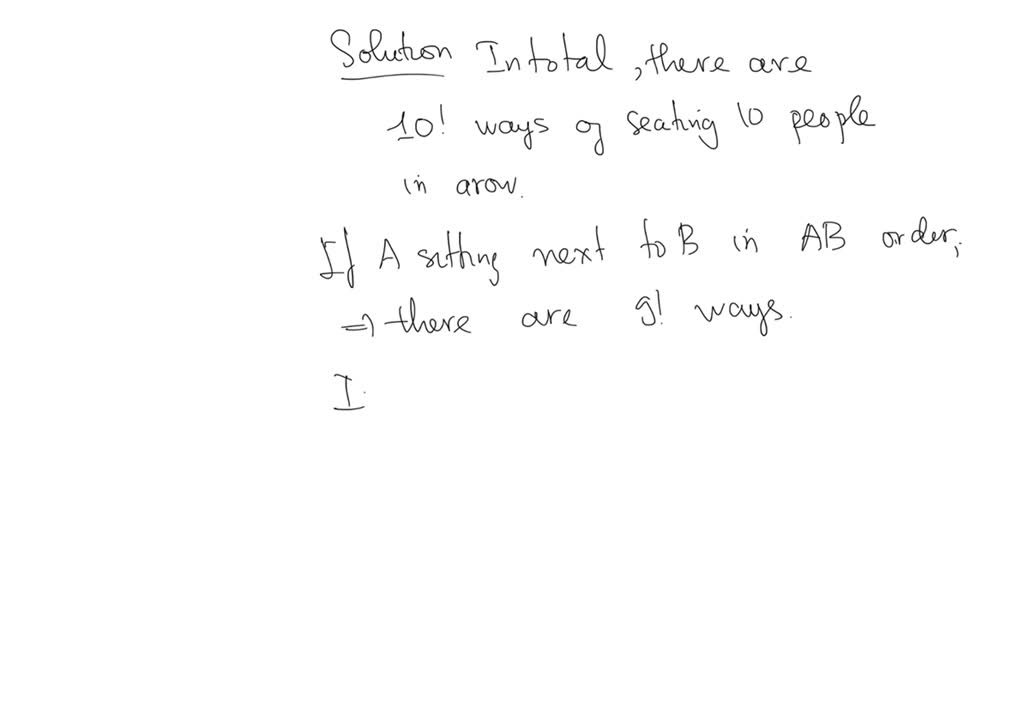 Solution In total, there are
10! ways of seating 10 people
in a row.
If A sitting next to B in AB order,
⇒ there are 9! ways.
I